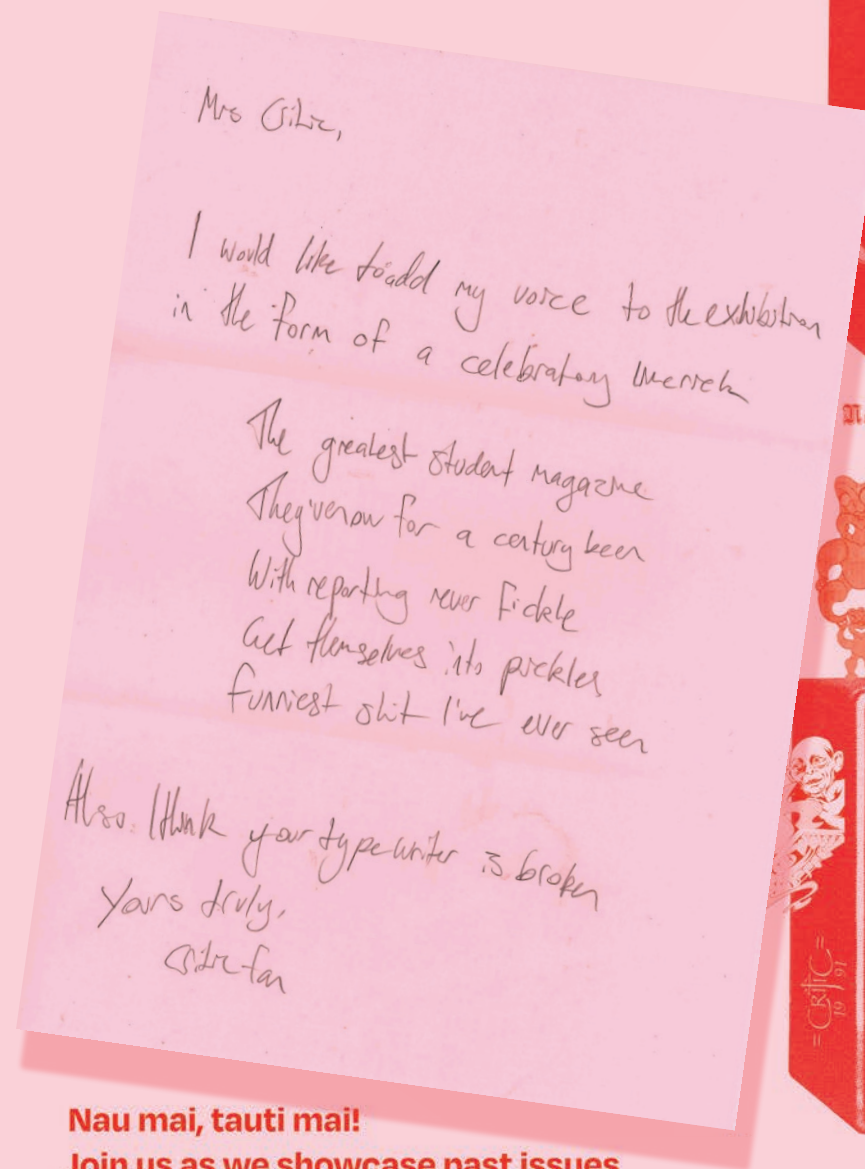 Mrs Critic,
I would like to add my voice to the exhibition
in the form of a celebratory limerick
The greatest student magazine
They've now for a century been
With reporting never fickle
Get themselves into pickles
Funniest shit I've ever seen
Also I think your typewriter is broken
Yours truly,
Critic fan
=CRITIC=
19 91
Nau mai, tauti mai!
Join us as we showcase past issues